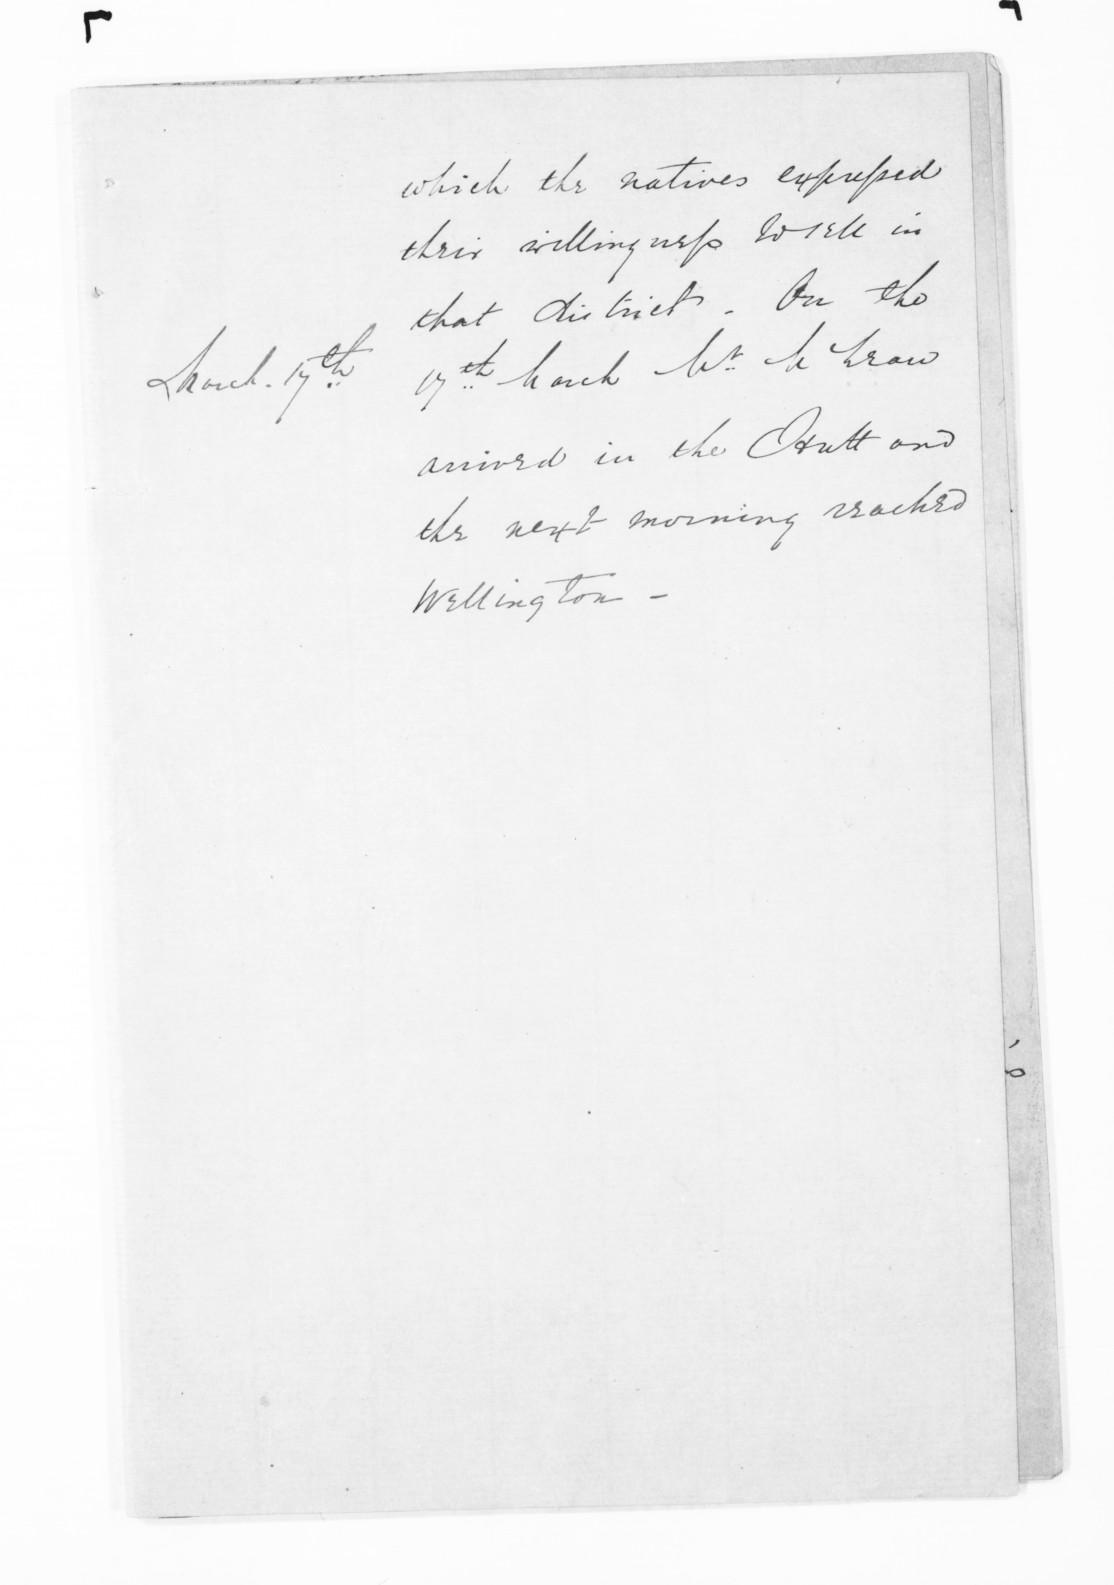 which the natives expressed
their willingness to sell in
that district - On the
March. 17th
17th March Mr. McLean
arrived in the Hutt and
the next morning reached
Wellington -